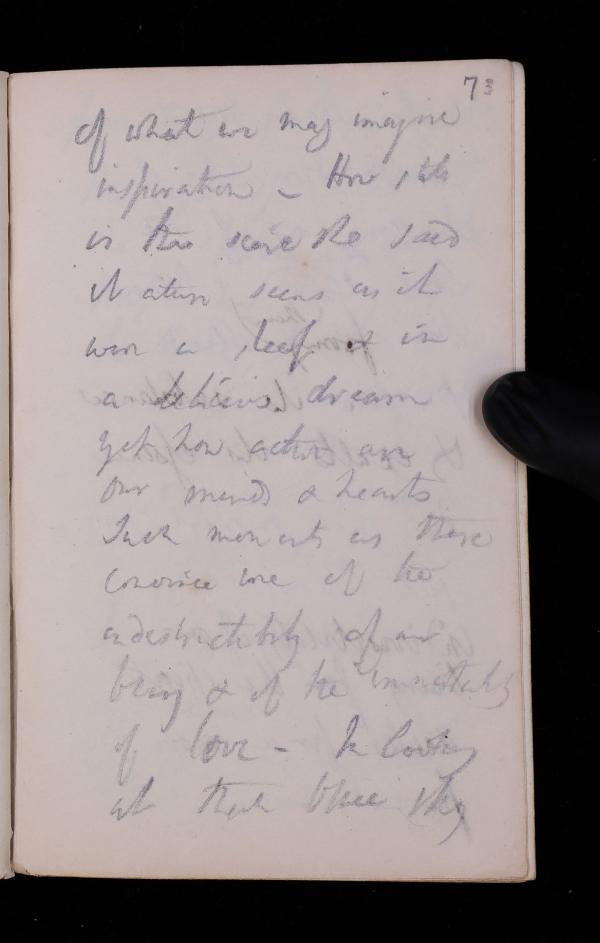 73
of what we may imagine
inspiration - How still
is this scene She said
Nature seems as if
were a sleep & in
a delicious dream
yet how active are
our minds & hearts
Such moments as these
convince one of the
indestructibility of our
being & of the immortality
of love - In looking
at that blue sky